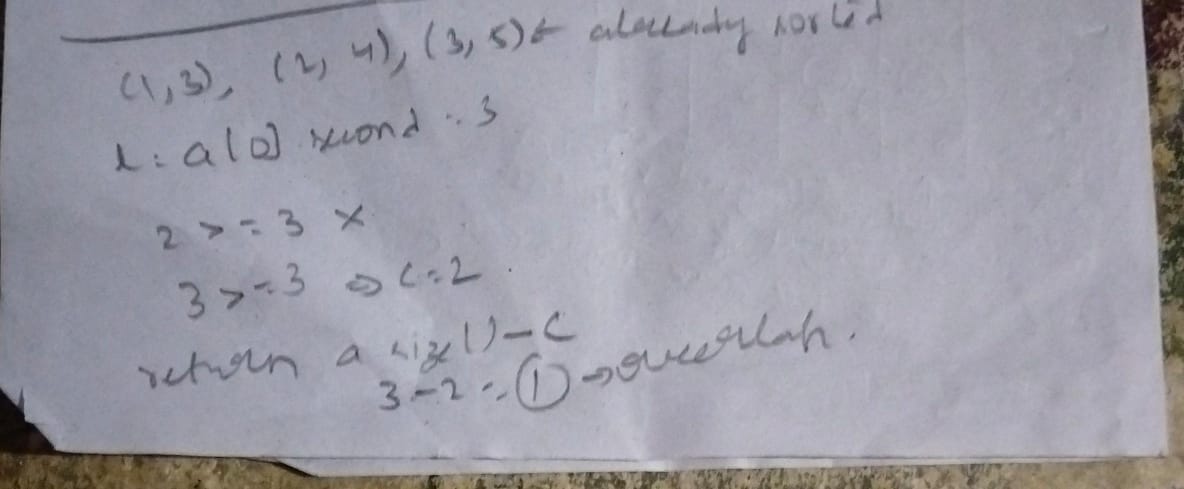 (1,3), (2, 4), (3, 5) ← already sorted
l = a[0] second = 3
2 >= 3 ×
3 >= 3 ⇒ c=2
return a size() - c
3-2 = 1 → overlap.